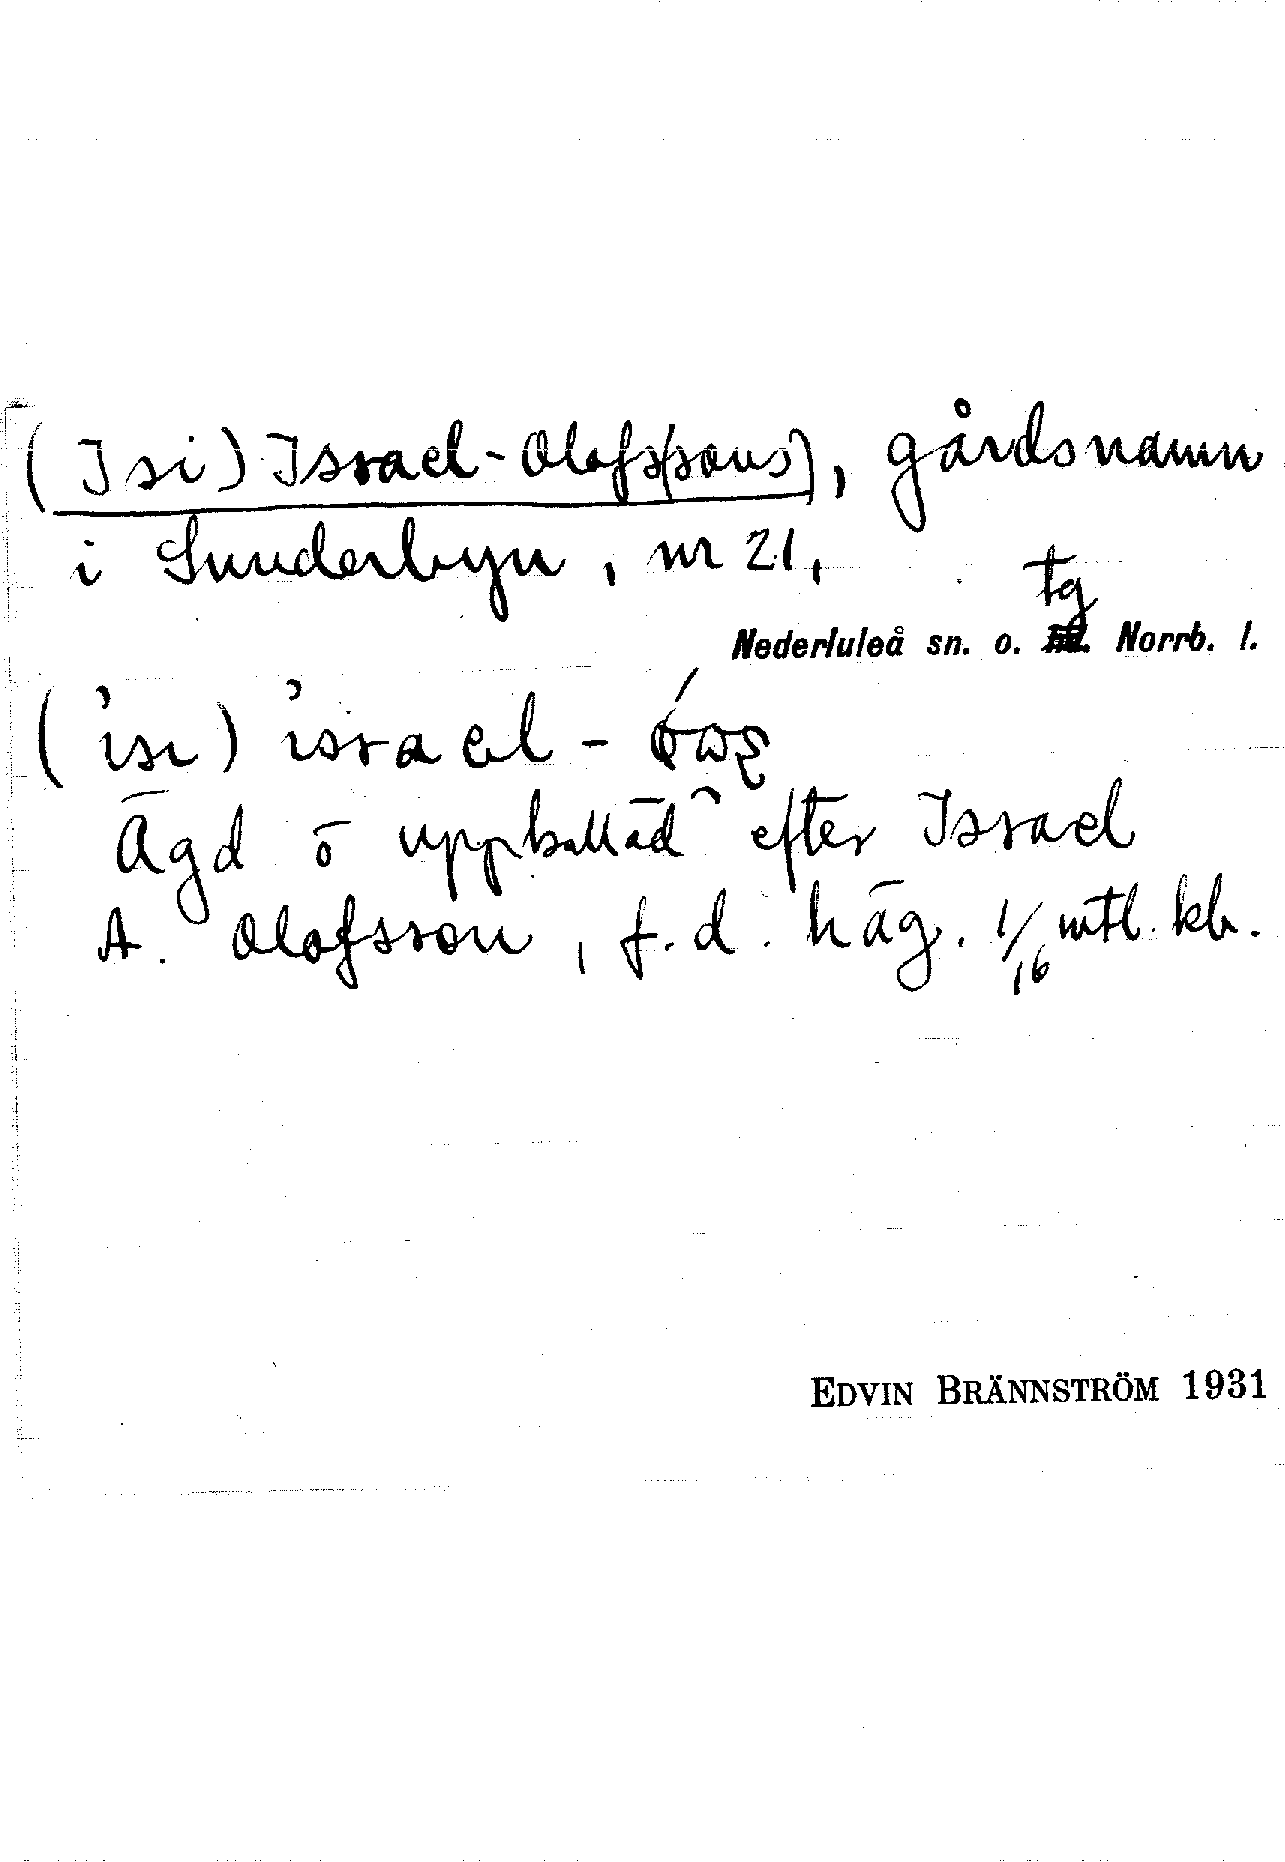 (Isi) Israel-Olofs(sons), gårdsnamn
i Sunderbyn, nr 21,
tg
Nederluleå sn. o. Norrb. l.
(ʼisi) ʼisrael -
Ägd o uppkallad efter Israel
A. Olofsson, f.d. häg. 1/16 mtl. kb.
EDVIN BRÄNNSTRÖM 1931